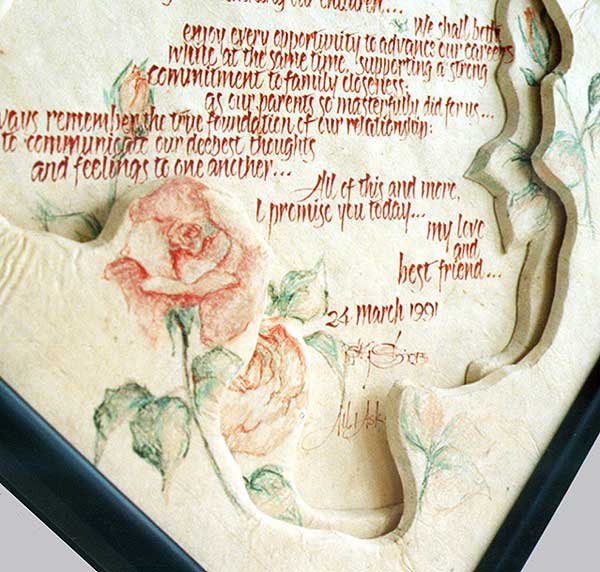 our children...
We shall both
enjoy every opportunity to advance our careers
while at the same time, supporting a strong
commitment to family closeness;
as our parents so masterfully did for us...
remember the true foundation of our relationship:
to communicate our deepest thoughts
and feelings to one another...
All of this and more,
I promise you today...
my love
and
best friend...
24 march 1991